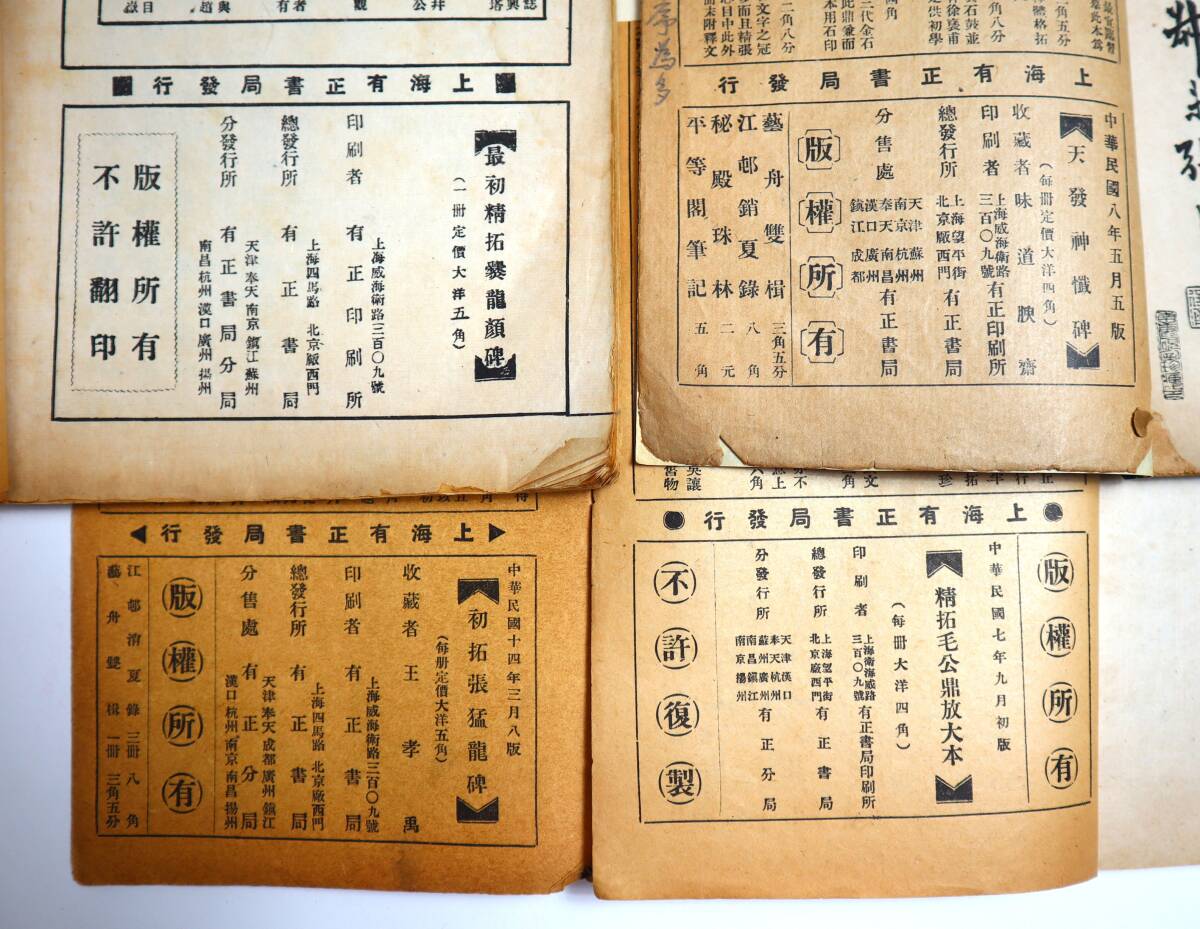 上海有正書局發行
最初精拓爨龍顏碑
(一冊定價大洋五角)
印刷者 上海威海衛路三百〇九號 有正印刷所
總發行所 上海四馬路 北京廠西門 有正書局
分發行所 天津奉天南京鎮江蘇州 南昌杭州漢口廣州揚州 有正書局分局
版權所有
不許翻印
上海有正書局發行
中華民國八年五月五版
天發神懺碑
(每冊定價大洋四角)
收藏者 味道腴齋
印刷者 上海威海衛路三百〇九號 有正印刷所
總發行所 上海望平街 北京廠西門 有正書局
分售處 天津蘇州 南京杭州 奉天南昌 漢口廣州 鎮江成都 有正書局
版權所有
藝舟雙楫 三角五分
江邨銷夏錄 八角
秘殿珠林 二元
平等閣筆記 五角
上海有正書局發行
中華民國十四年三月八版
初拓張猛龍碑
(每册定價大洋五角)
收藏者 王孝禹
印刷者 上海威海衛路三百〇九號 有正書局
總發行所 上海四馬路 北京廠西門 有正書局
分售處 天津奉天成都廣州鎮江 漢口杭州南京南昌揚州 有正分局
版權所有
江邨消夏錄 三冊 八角
藝舟雙楫 一冊 三角五分
上海有正書局發行
版權所有
中華民國七年九月初版
精拓毛公鼎放大本
(每冊大洋四角)
印刷者 上海衛海威路三百〇九號 有正書局印刷所
總發行所 上海望平街 北京廠西門 有正書局
分發行所 天津漢口 奉天杭州 蘇州廣州 南昌鎮江 南京揚州 有正分局
不許復製